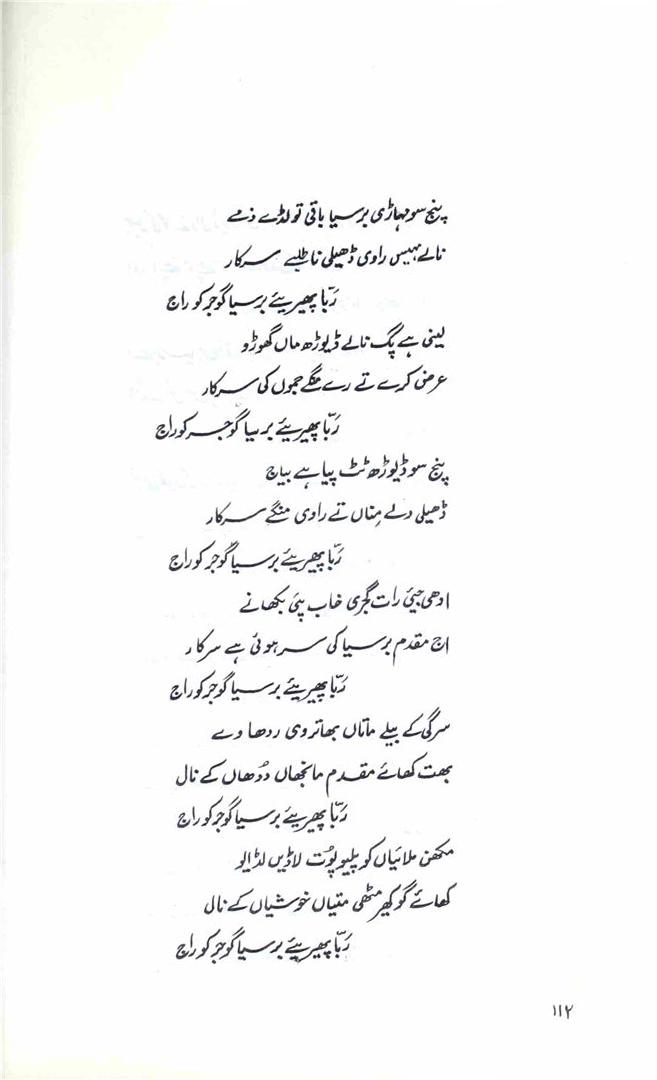 پنج سو مہاڑی برسیا باقی تو لڈے ذمے
نالے بہیس راوی ڈھیلی نا طلبے سرکار
ربّا پھیریئے برسیا گوجر کو راج
لینی ہے پگ نالے ڈیوڑھ ماں گھوڑو
عرض کرے تے رے منگے جموں کی سرکار
ربّا پھیریئے برسیا گوجر کو راج
پنج سو ڈیوڑھ ٹٹ پیا ہے بیاج
ڈھیلی دلے مناں تے راوی منگے سرکار
ربّا پھیریئے برسیا گوجر کو راج
ادھی جیئی رات گجری خاب پئی بکھانے
اج مقدم برسیا کی سر ہوئی ہے سرکار
ربّا پھیریئے برسیا گوجر کو راج
سرگی کے بیلے ماتاں بھاتروی ردھاوے
بھت کھائے مقدم مانجھاں دُدھاں کے نال
ربّا پھیریئے برسیا گوجر کو راج
مکھن ملائیاں کو پلیو پُوت لاڈیں لڈالیو
کھائے گو کھیر مٹھی متیاں خوشیاں کے نال
ربّا پھیریئے برسیا گوجر کو راج
۱۱۲